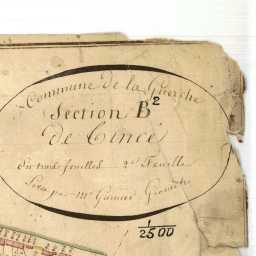 Commune de la Guerche
Section B²
de Cincé
en trois feuilles 2e Feuille
Levé par Mr Garnier Géomètre
1/2500